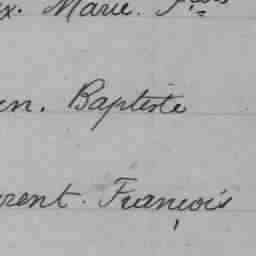 x. Marie. Fçois
en. Baptiste
rent. François